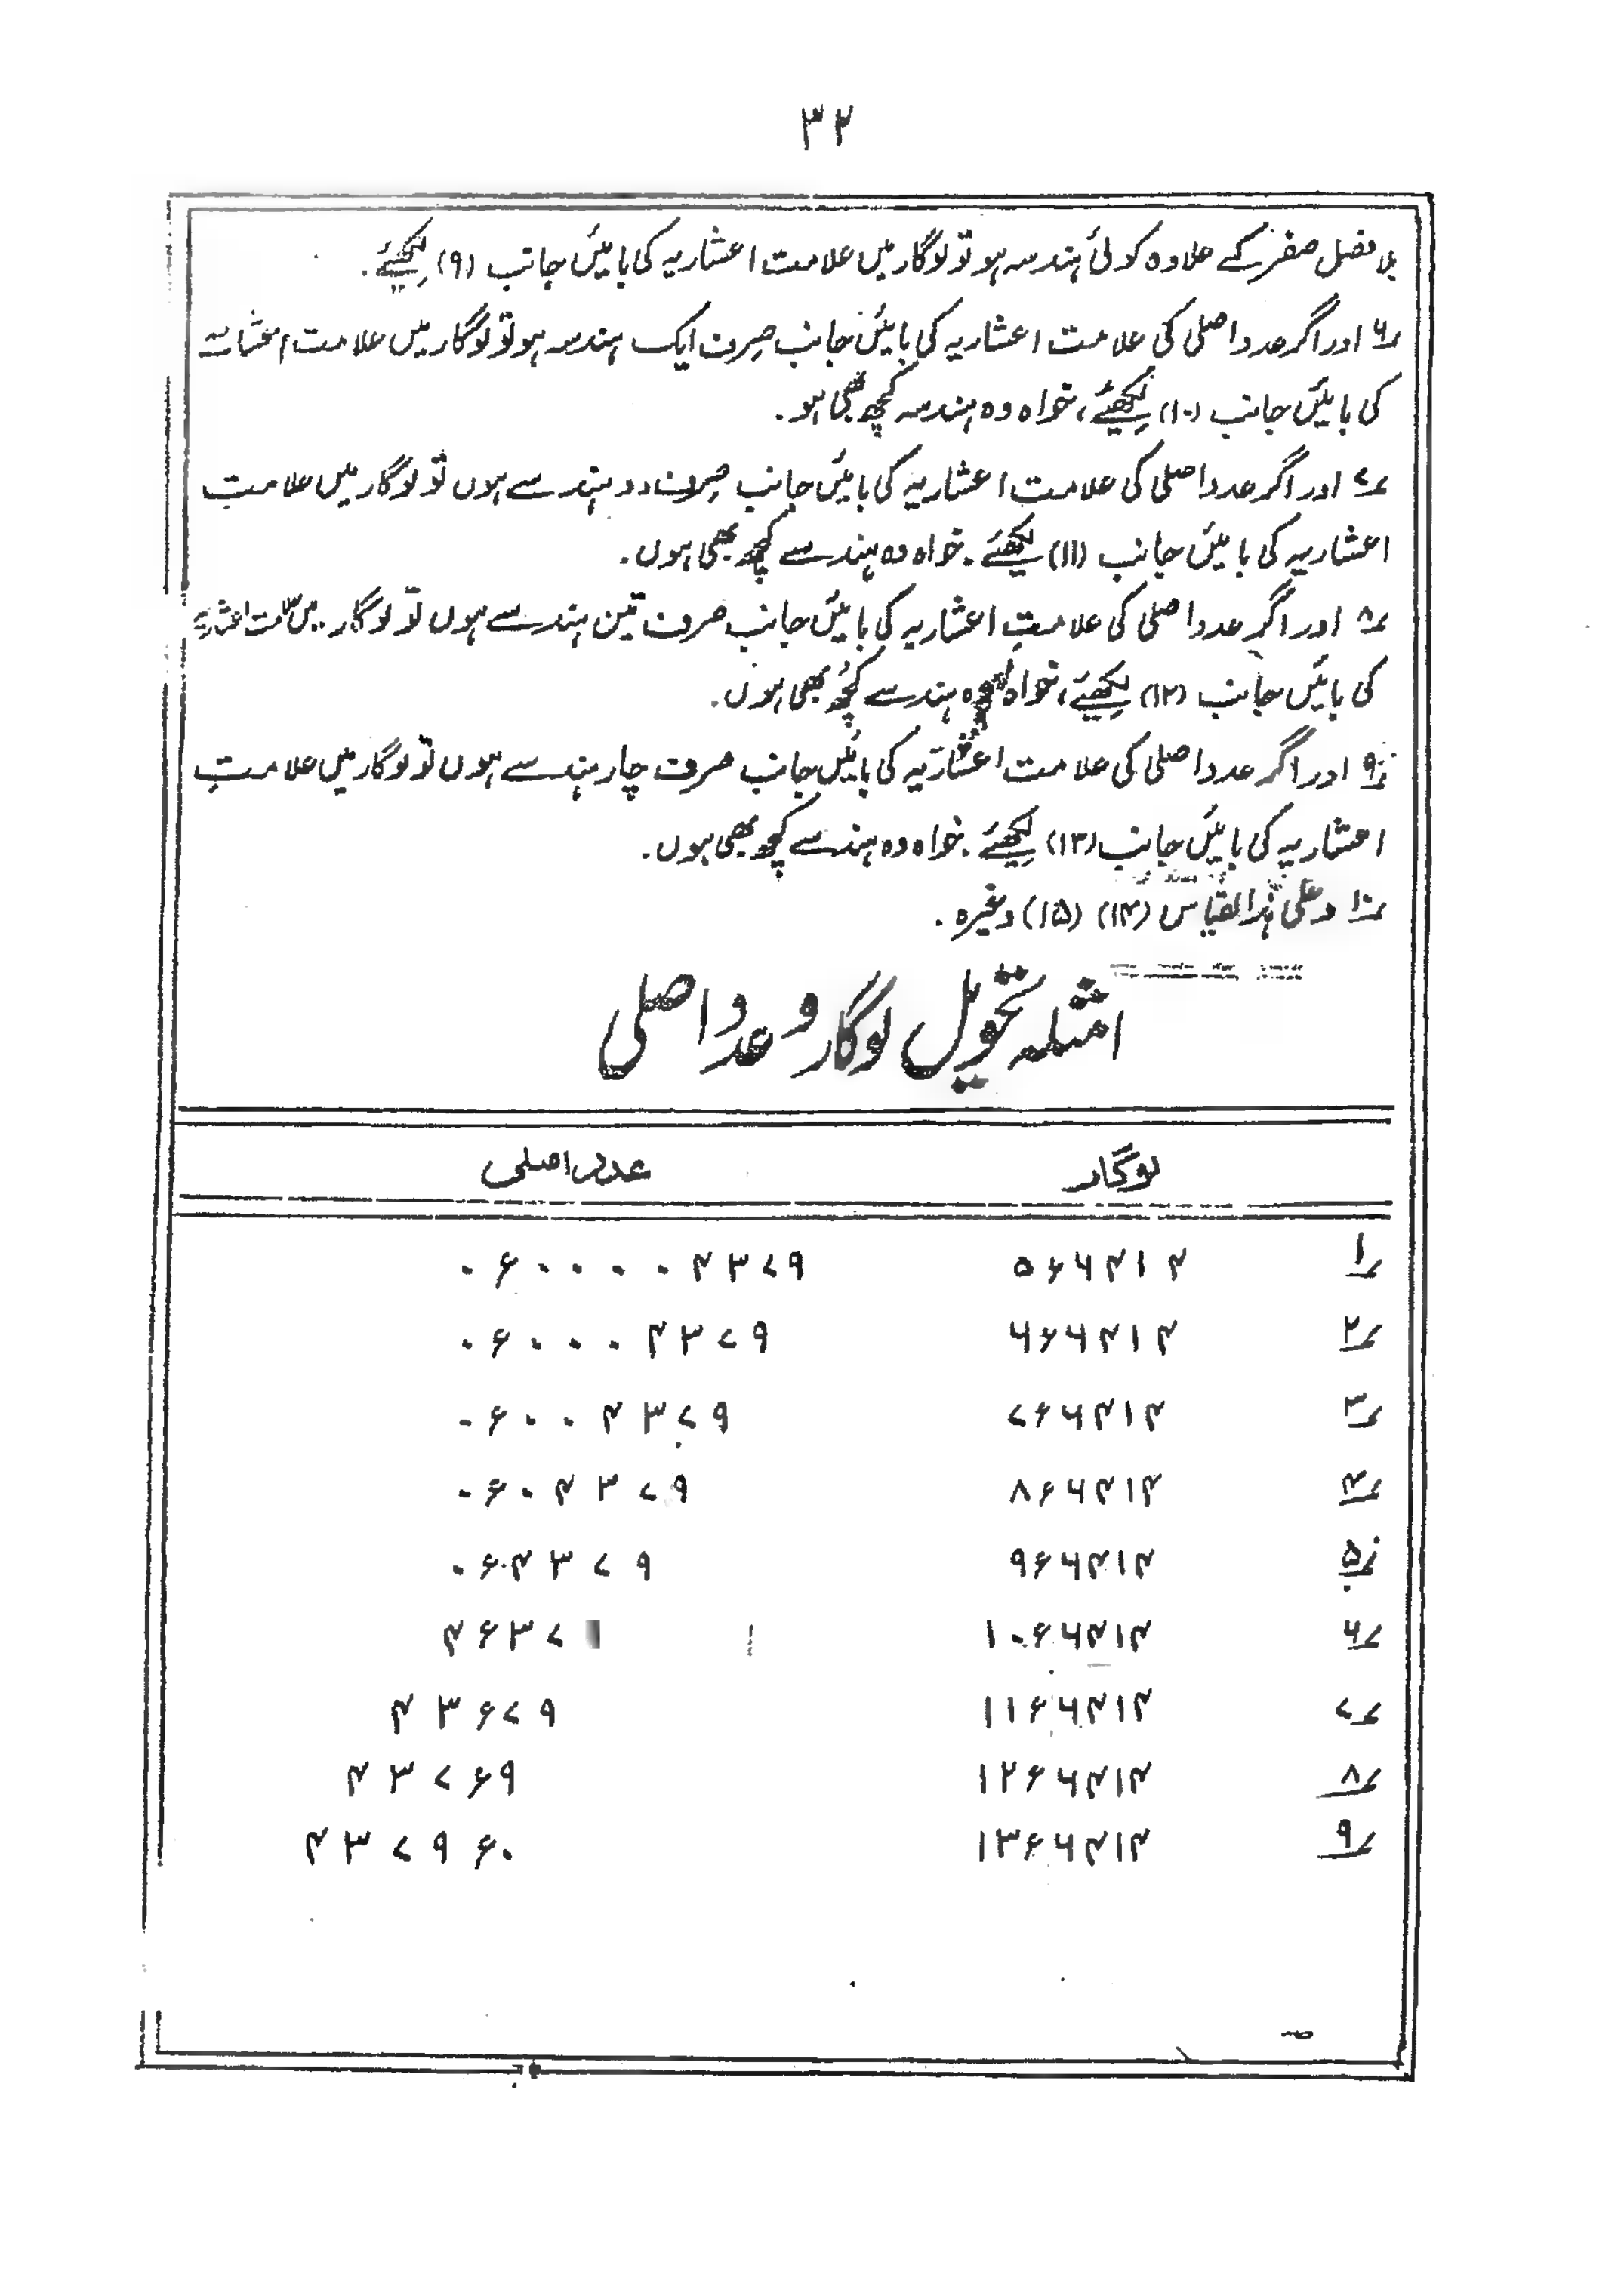 ۳۲
بلا فصل صفر کے علاوہ کوئی ہندسہ ہو تو لوگار میں علامت اعشاریہ کی بائیں جانب (۹) لکھئے۔
۶؍ اور اگر عدد اصلی کی علامت اعشاریہ کی بائیں جانب صرف ایک ہندسہ ہو تو لوگار میں علامت اعشاریہ
کی بائیں جانب (۱۰) لکھیئے، خواہ وہ ہندسہ کچھ بھی ہو۔
۷؍ اور اگر عدد اصلی کی علامت اعشاریہ کی بائیں جانب صرف دو ہندسے ہوں تو لوگار میں علامتِ
اعشاریہ کی بائیں جانب (۱۱) لکھئے۔ خواہ وہ ہندسے کچھ بھی ہوں۔
۸؍ اور اگر عدد اصلی کی علامتِ اعشاریہ کی بائیں جانب صرف تین ہندسے ہوں تو لوگار میں علامت اعشاریہ
کی بائیں جانب (۱۲) لکھیئے، خواہ وہ ہندسے کچھ بھی ہوں۔
۹؍ اور اگر عدد اصلی کی علامت اعشاریہ کی بائیں جانب صرف چار ہندسے ہوں تو لوگار میں علامتِ
اعشاریہ کی بائیں جانب (۱۳) لکھیئے۔ خواہ وہ ہندسے کچھ بھی ہوں۔
۱۰؍ وعلی ہذا القیاس (۱۴) (۱۵) وغیرہ۔
امثلہ تحویل لوگار و عدد اصلی
لوگار عدد اصلی
۱؍ ۵ء۶۴۱۴ ۰ء۰۰۰۰۴۳۷۹
۲؍ ۶ء۶۴۱۴ ۰ء۰۰۰۴۳۷۹
۳؍ ۷ء۶۴۱۴ ۰ء۰۰۴۳۷۹
۴؍ ۸ء۶۴۱۴ ۰ء۰۴۳۷۹
۵؍ ۹ء۶۴۱۴ ۰ء۴۳۷۹
۶؍ ۱۰ء۶۴۱۴ ۴ء۳۷
۷؍ ۱۱ء۶۴۱۴ ۴۳ء۷۹
۸؍ ۱۲ء۶۴۱۴ ۴۳۷ء۹
۹؍ ۱۳ء۶۴۱۴ ۴۳۷۹ء۰